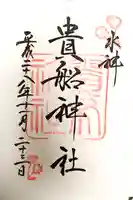 水神
貴船神社
平成二十八年十月二十三日